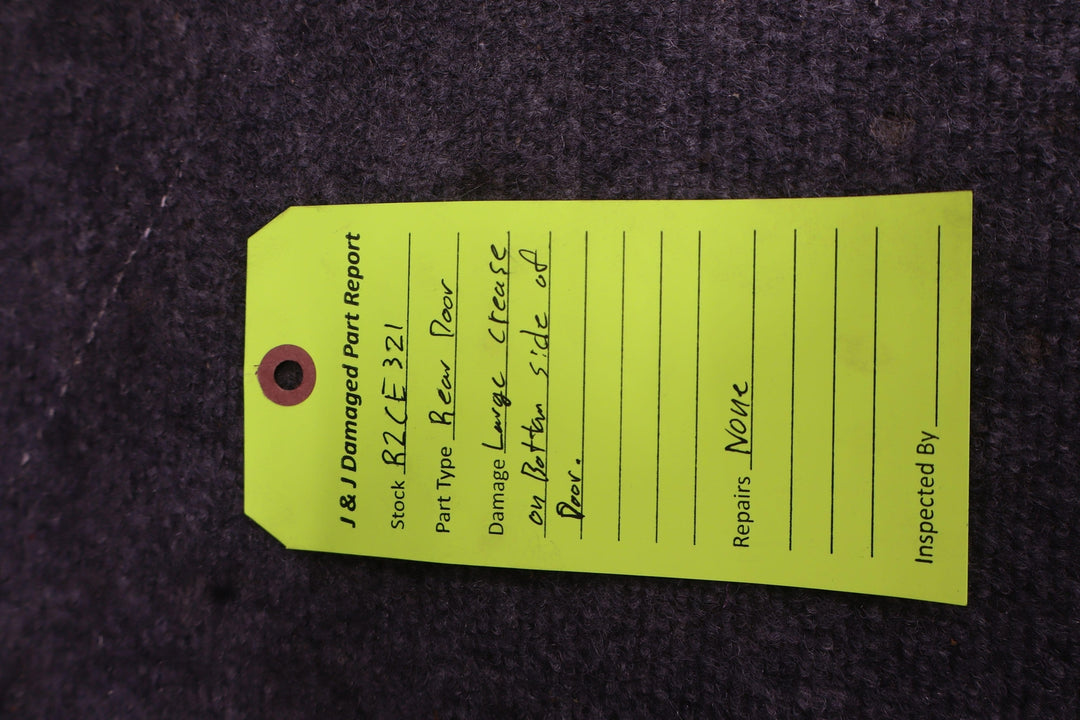 J & J Damaged Part Report
Stock R2CE 321
Part Type Rear Door
Damage Large crease
on Bottom side of
Door.
Repairs None
Inspected By